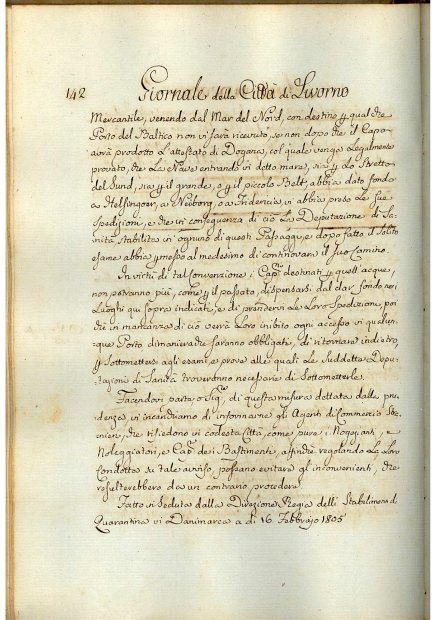 142 Giornale della Città di Livorno
Mercantile, venendo dal Mar del Nord, con destino p qual che
Porto del Baltico non vi sarà ricevuto, se non dopo che il Capo
avrà prodotto l'attestato di Dogana, col quale venga legalmente
provato, che la Nave entrando in detto mare, sia p lo Stretto
del Sund, sia p il grande, o p il piccolo Belt, abbia dato fondo
a Helsingoer, a Neiborg, o a Fridericia, vi abbia preso le sue
Spedizioni, e che in conseguenza di ciò la Deputazione di Sa-
nità stabilita in ognuno di questi Passaggi, e dopo fatto il solito
esame abbia pmesso al medesimo di continovare il suo Camino.
In virtù di tal convenzione i Capni destinati p quell'acque,
non potranno più, come p il passato, dispensarsi dal dar fondo nei
Luoghi qui sopra indicati, e di prendervi le Loro Spedizioni, poi
che in mancanza di ciò verrà Loro inibito ogni accesso in qualun-
que Porto dimanierache saranno obbligati, di ritornare indietro,
p sottomettersi agli esami, e prove alle quali la suddetta Depu-
tazione di Sanità troveranno necessarie di sottometterle.
Facendovi parte, o Sigri, di questa misura dettata dalla pru-
denza, vi incarichiamo di informarne gli Agenti di Commercio
che risiedono in codesta Città, come pure i Negozianti, e
Noleggiatori, e Capni dei Bastimenti, affinche regolando la Loro
condotta su tale avviso, possano evitare gli inconvenienti, che
resulterebbero da un contrario procedere
Fatto in Seduta dalla Direzione Regia delli Stabilimenti di
Quarantina in Danimarca a di 16 Febbrajo 1805